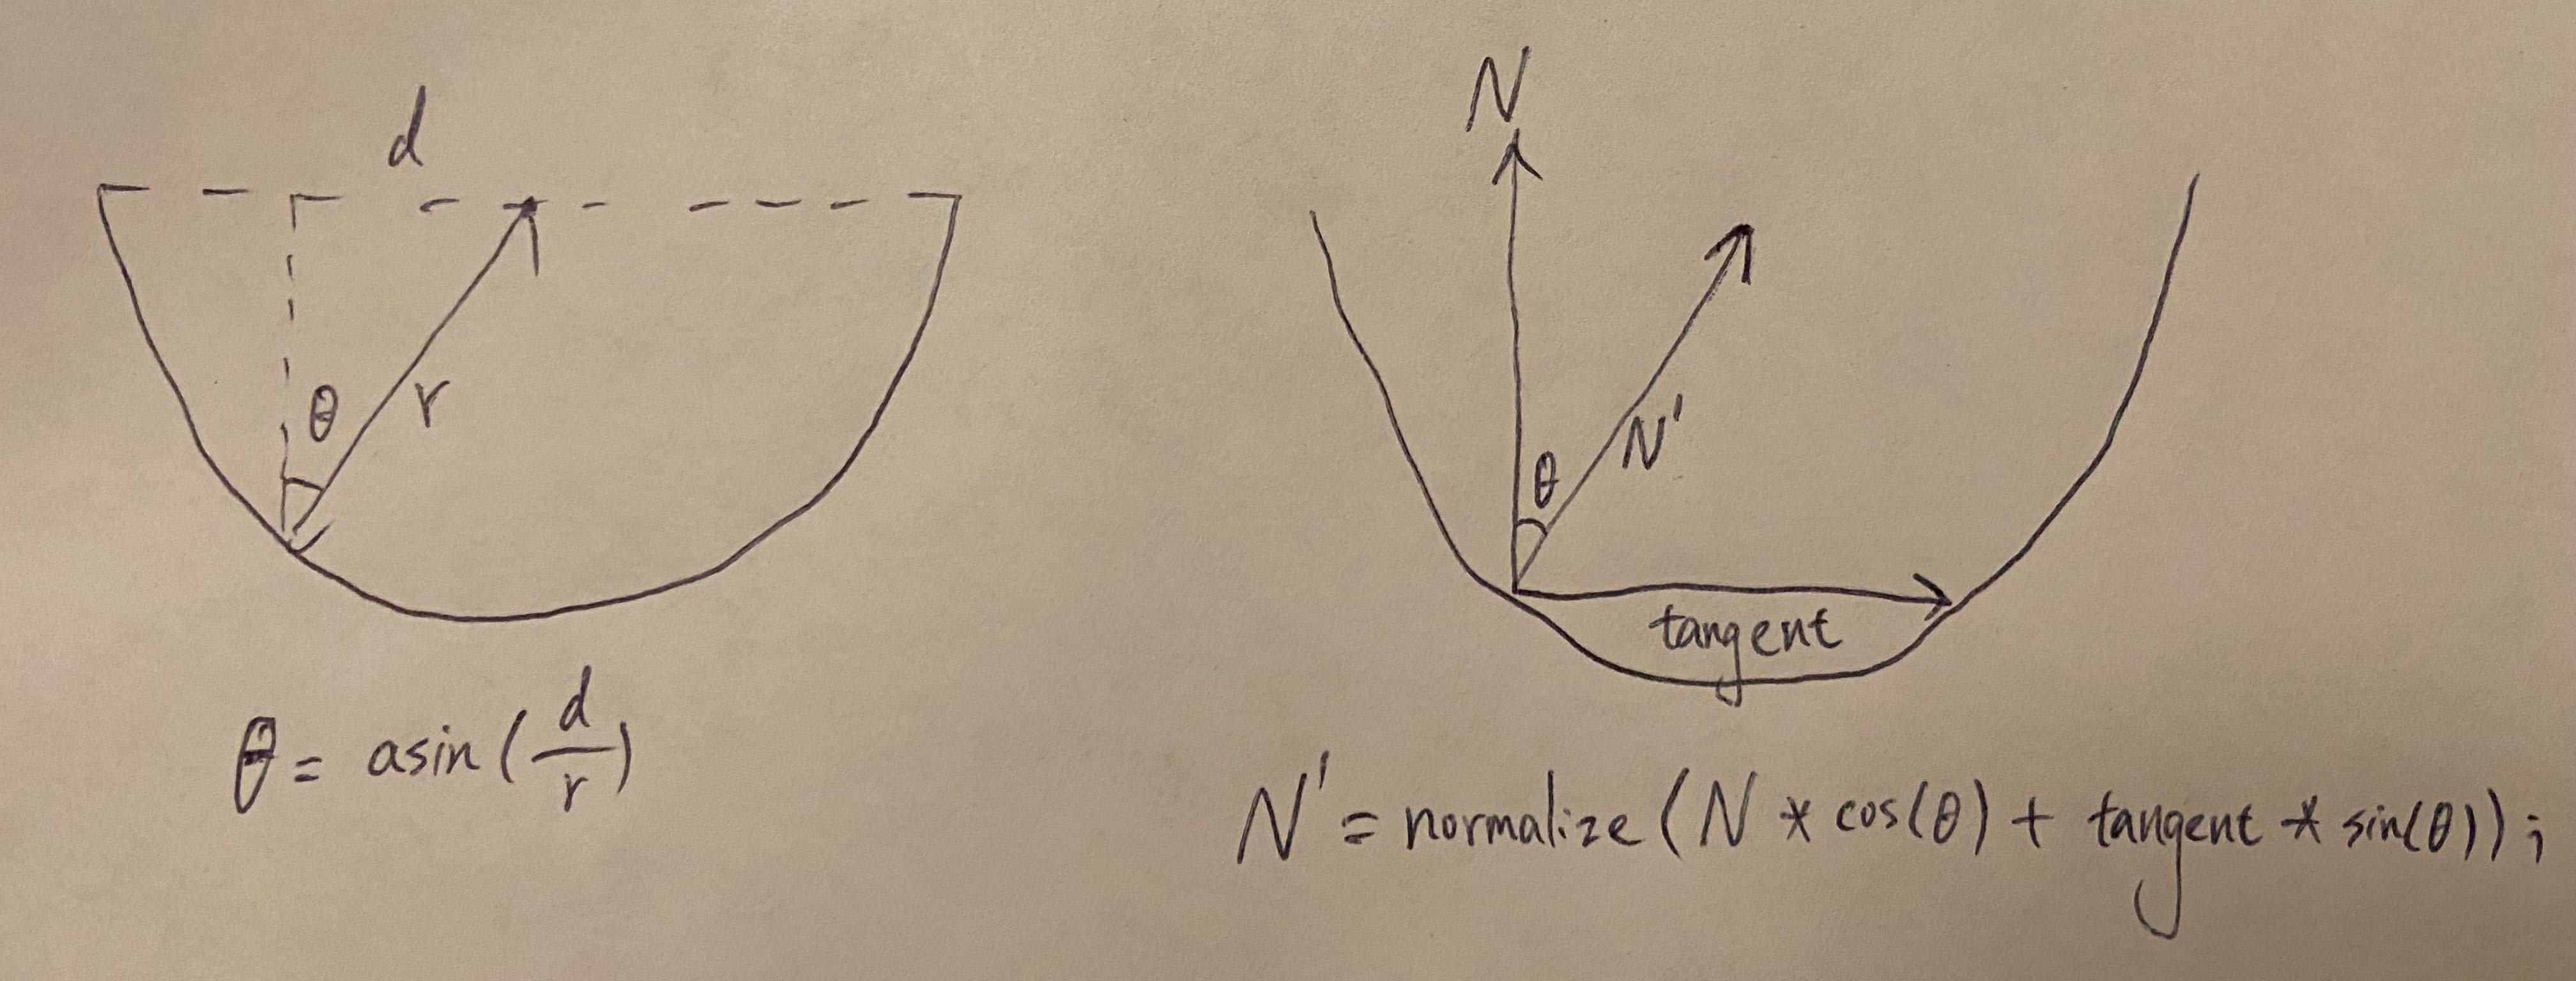 d
θ
r
θ = asin(d/r)
N
N'
θ
tangent
N' = normalize(N * cos(θ) + tangent * sin(θ));